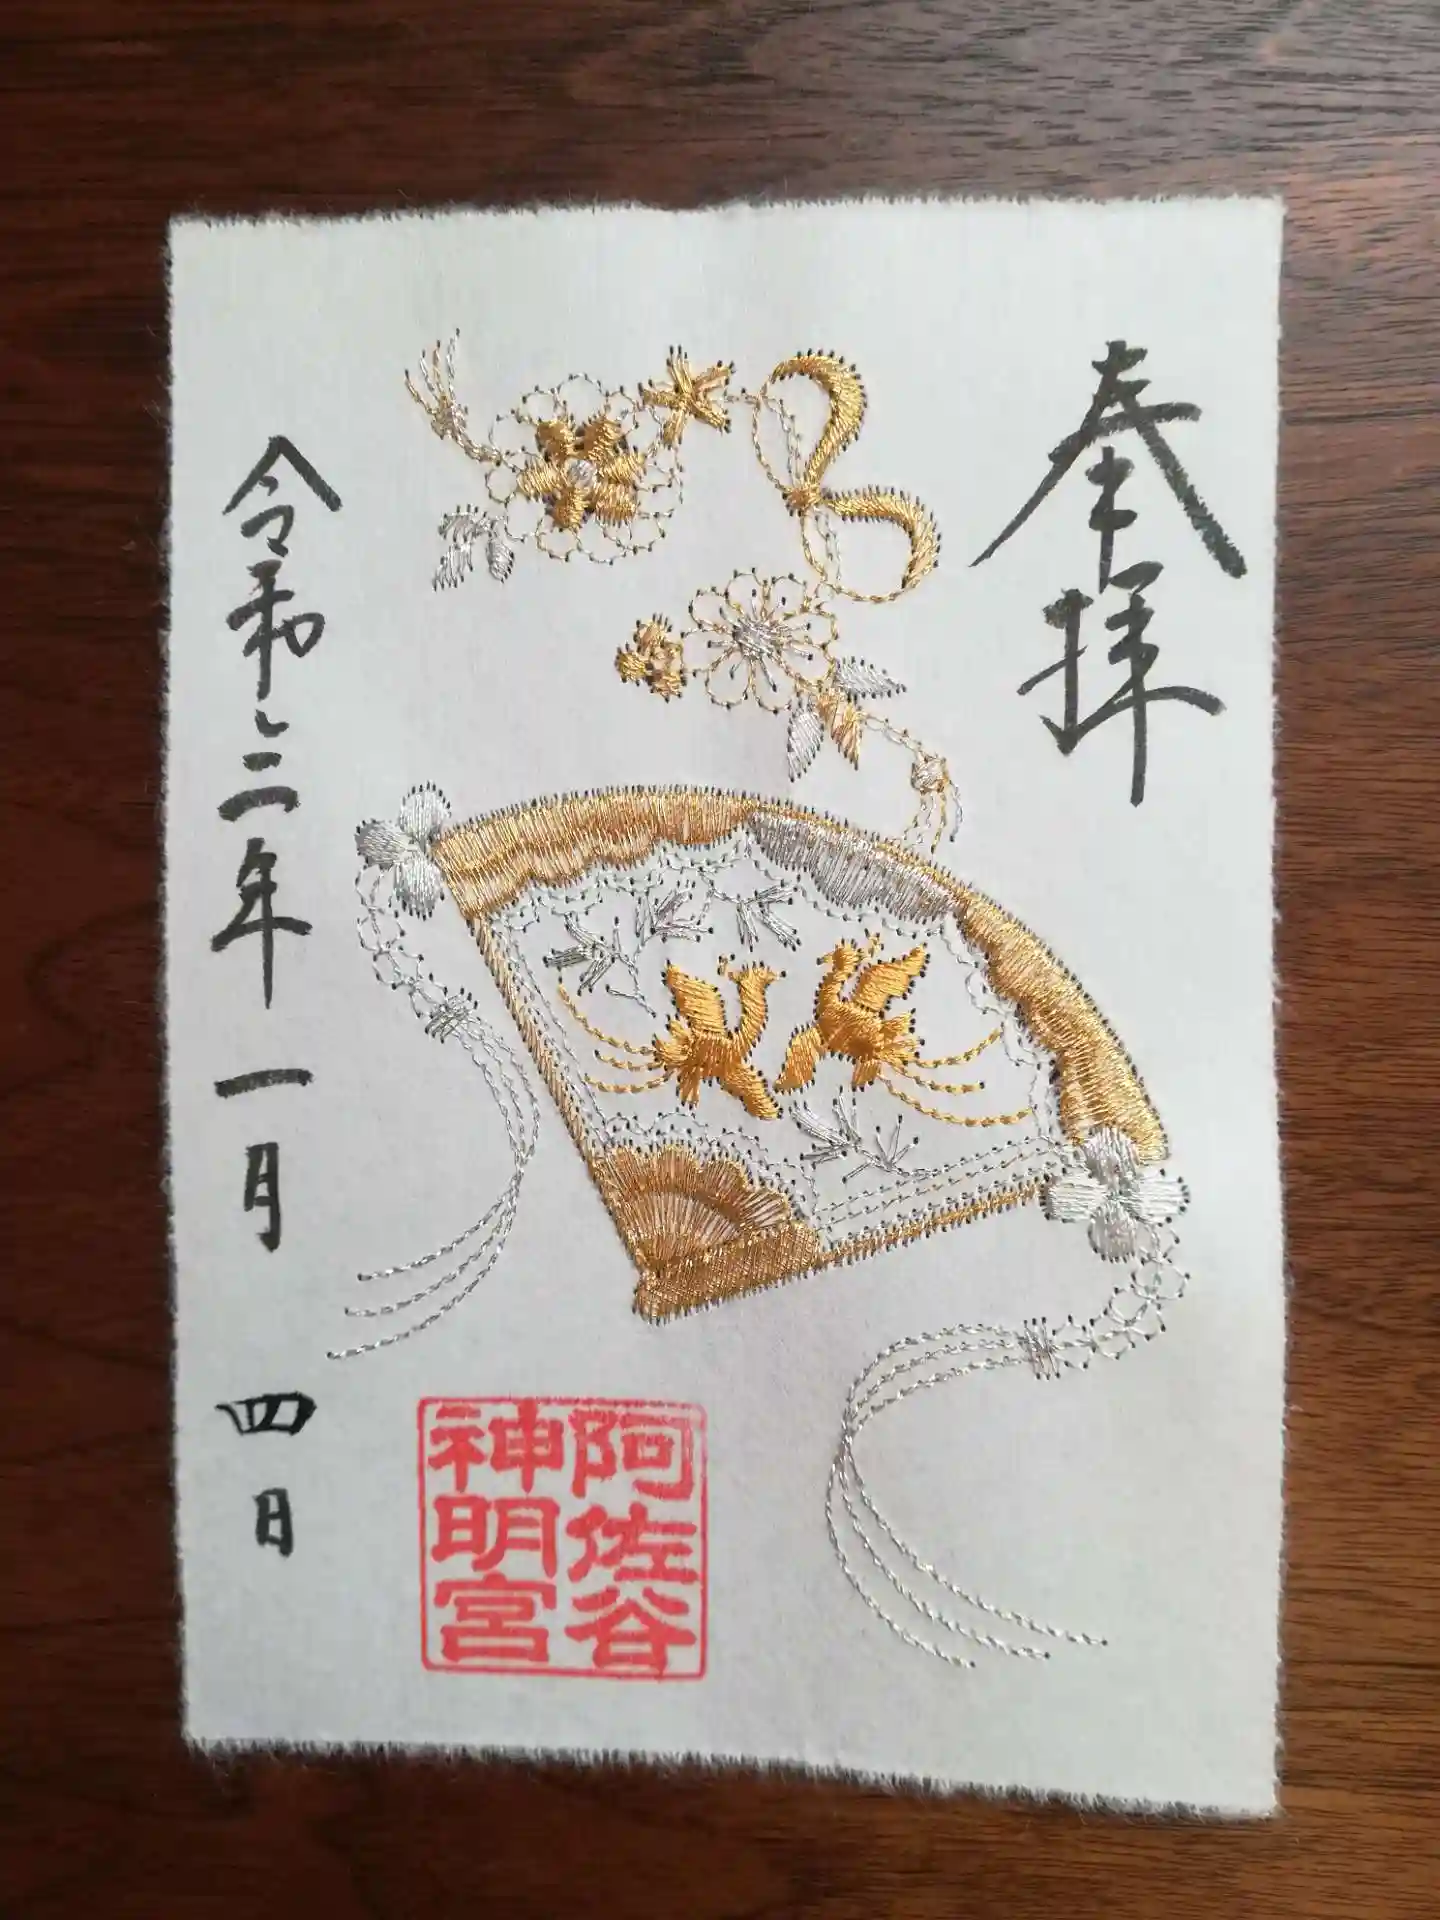 奉拝
阿佐谷
神明宮
令和三年一月四日